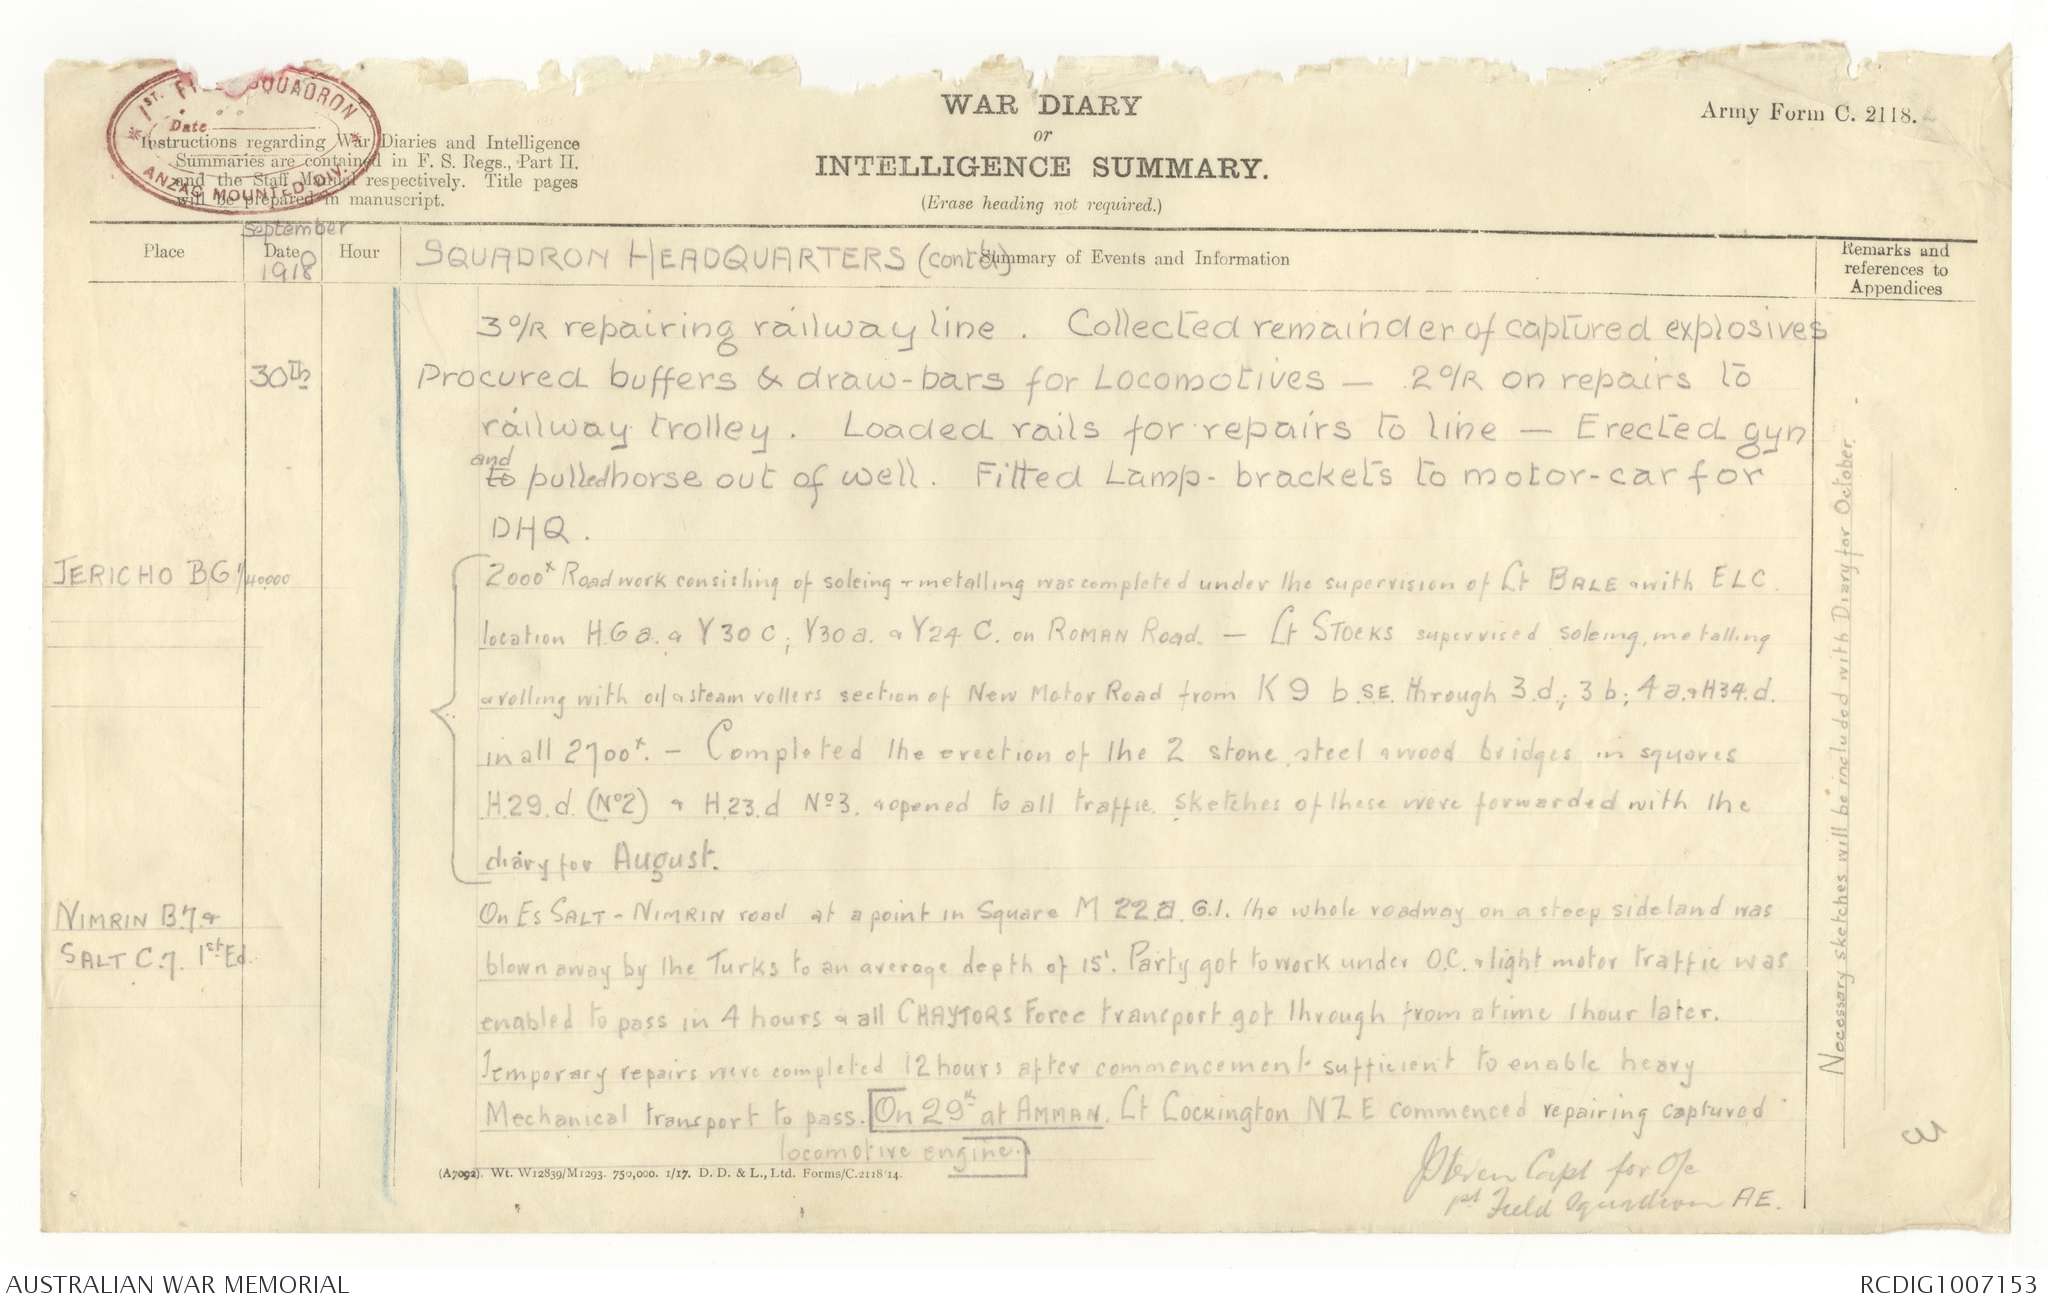 1ST. FIELD SQUADRON
Date
ANZAC MOUNTED DIV.
Instructions regarding War Diaries and Intelligence
Summaries are contained in F. S. Regs., Part II.
and the Staff Manual respectively. Title pages
will be prepared in manuscript.
WAR DIARY
or
INTELLIGENCE SUMMARY.
(Erase heading not required.)
Army Form C. 2118.
Place
September
Date
1918
Hour
SQUADRON HEADQUARTERS (contd)
Summary of Events and Information
Remarks and
references to
Appendices
3 O/R repairing railway line. Collected remainder of captured explosives
30th Procured buffers & draw-bars for Locomotives — 2 O/R on repairs to
railway trolley. Loaded rails for repairs to line — Erected gyn
and
to pulled horse out of well. Fitted Lamp-brackets to motor-car for
DHQ.
JERICHO BG 1/40000
2000x Roadwork consisting of soleing & metalling was completed under the supervision of Lt BALE & with ELC
location H.6a. & Y30C; Y30a. & Y24 C. on ROMAN Road. — Lt STOCKS supervised soleing, metalling
& rolling with oil & steam rollers section of New Motor Road from K 9 b.SE. through 3.d.; 3 b; 4a. & H34.d.
in all 2700x. — Completed the erection of the 2 stone, steel & wood bridges in squares
H.29.d. (No2) & H.23.d No3. & opened to all traffic. Sketches of these were forwarded with the
diary for August.
NIMRIN B.7. &
SALT C.7. 1st Ed.
On ES SALT - NIMRIN road at a point in Square M 22.a. 6.1. the whole roadway on a steep sideland was
blown away by the Turks to an average depth of 15'. Party got to work under O.C. & light motor traffic was
enabled to pass in 4 hours & all CHAYTORS Force transport got through from a time 1 hour later.
Temporary repairs were completed 12 hours after commencement sufficient to enable heavy
Mechanical transport to pass. On 29th at AMMAN. Lt Lockington NZE commenced repairing captured
locomotive engine.
Necessary sketches will be included with Diary for October.
3
(A7092). Wt. W12839/M1293. 750,000. 1/17. D. D. & L., Ltd. Forms/C.2118/14.
Capt for O/c
1st Field Squadron AE.
AUSTRALIAN WAR MEMORIAL
RCDIG1007153